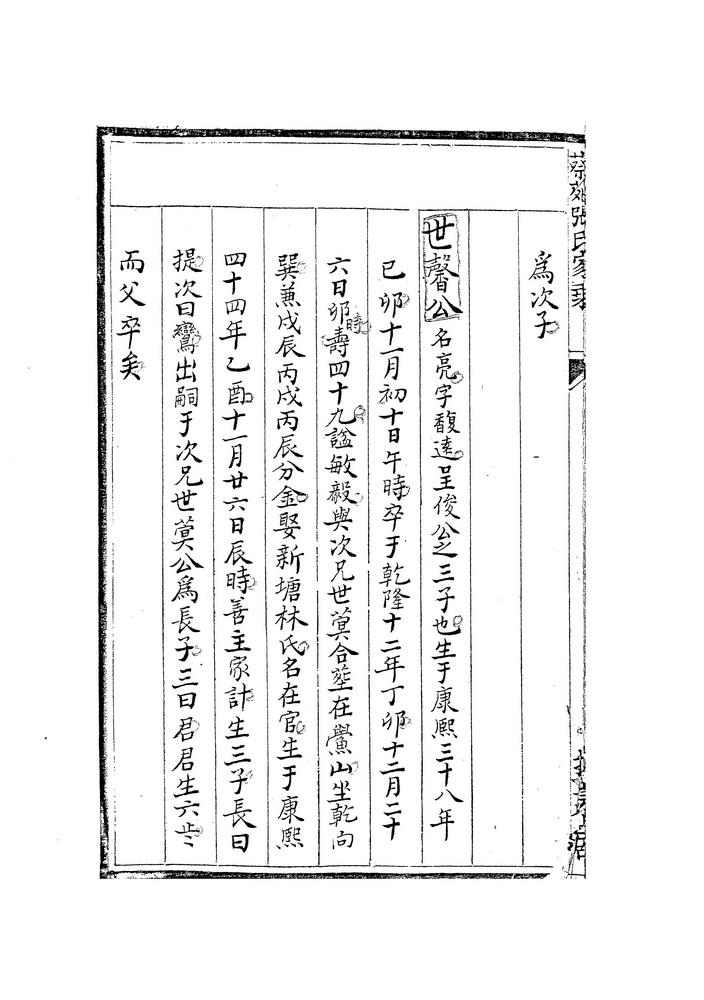 蔡郊張氏家乘
為次子
世馨公名亮字馥遠呈俊公之三子也生于康熙三十八年
己卯十一月初十日午時卒于乾隆十二年丁卯十二月二十
六日卯時壽四十九諡敏毅與次兄世蓂合塟在鱟山坐乾向
巽兼戌辰丙戌丙辰分金娶新塘林氏名在官生于康熙
四十四年乙酉十一月廿六日辰時善主家計生三子長曰
提次曰鸞出嗣于次兄世蓂公為長子三曰君君生六歲
而父卒矣